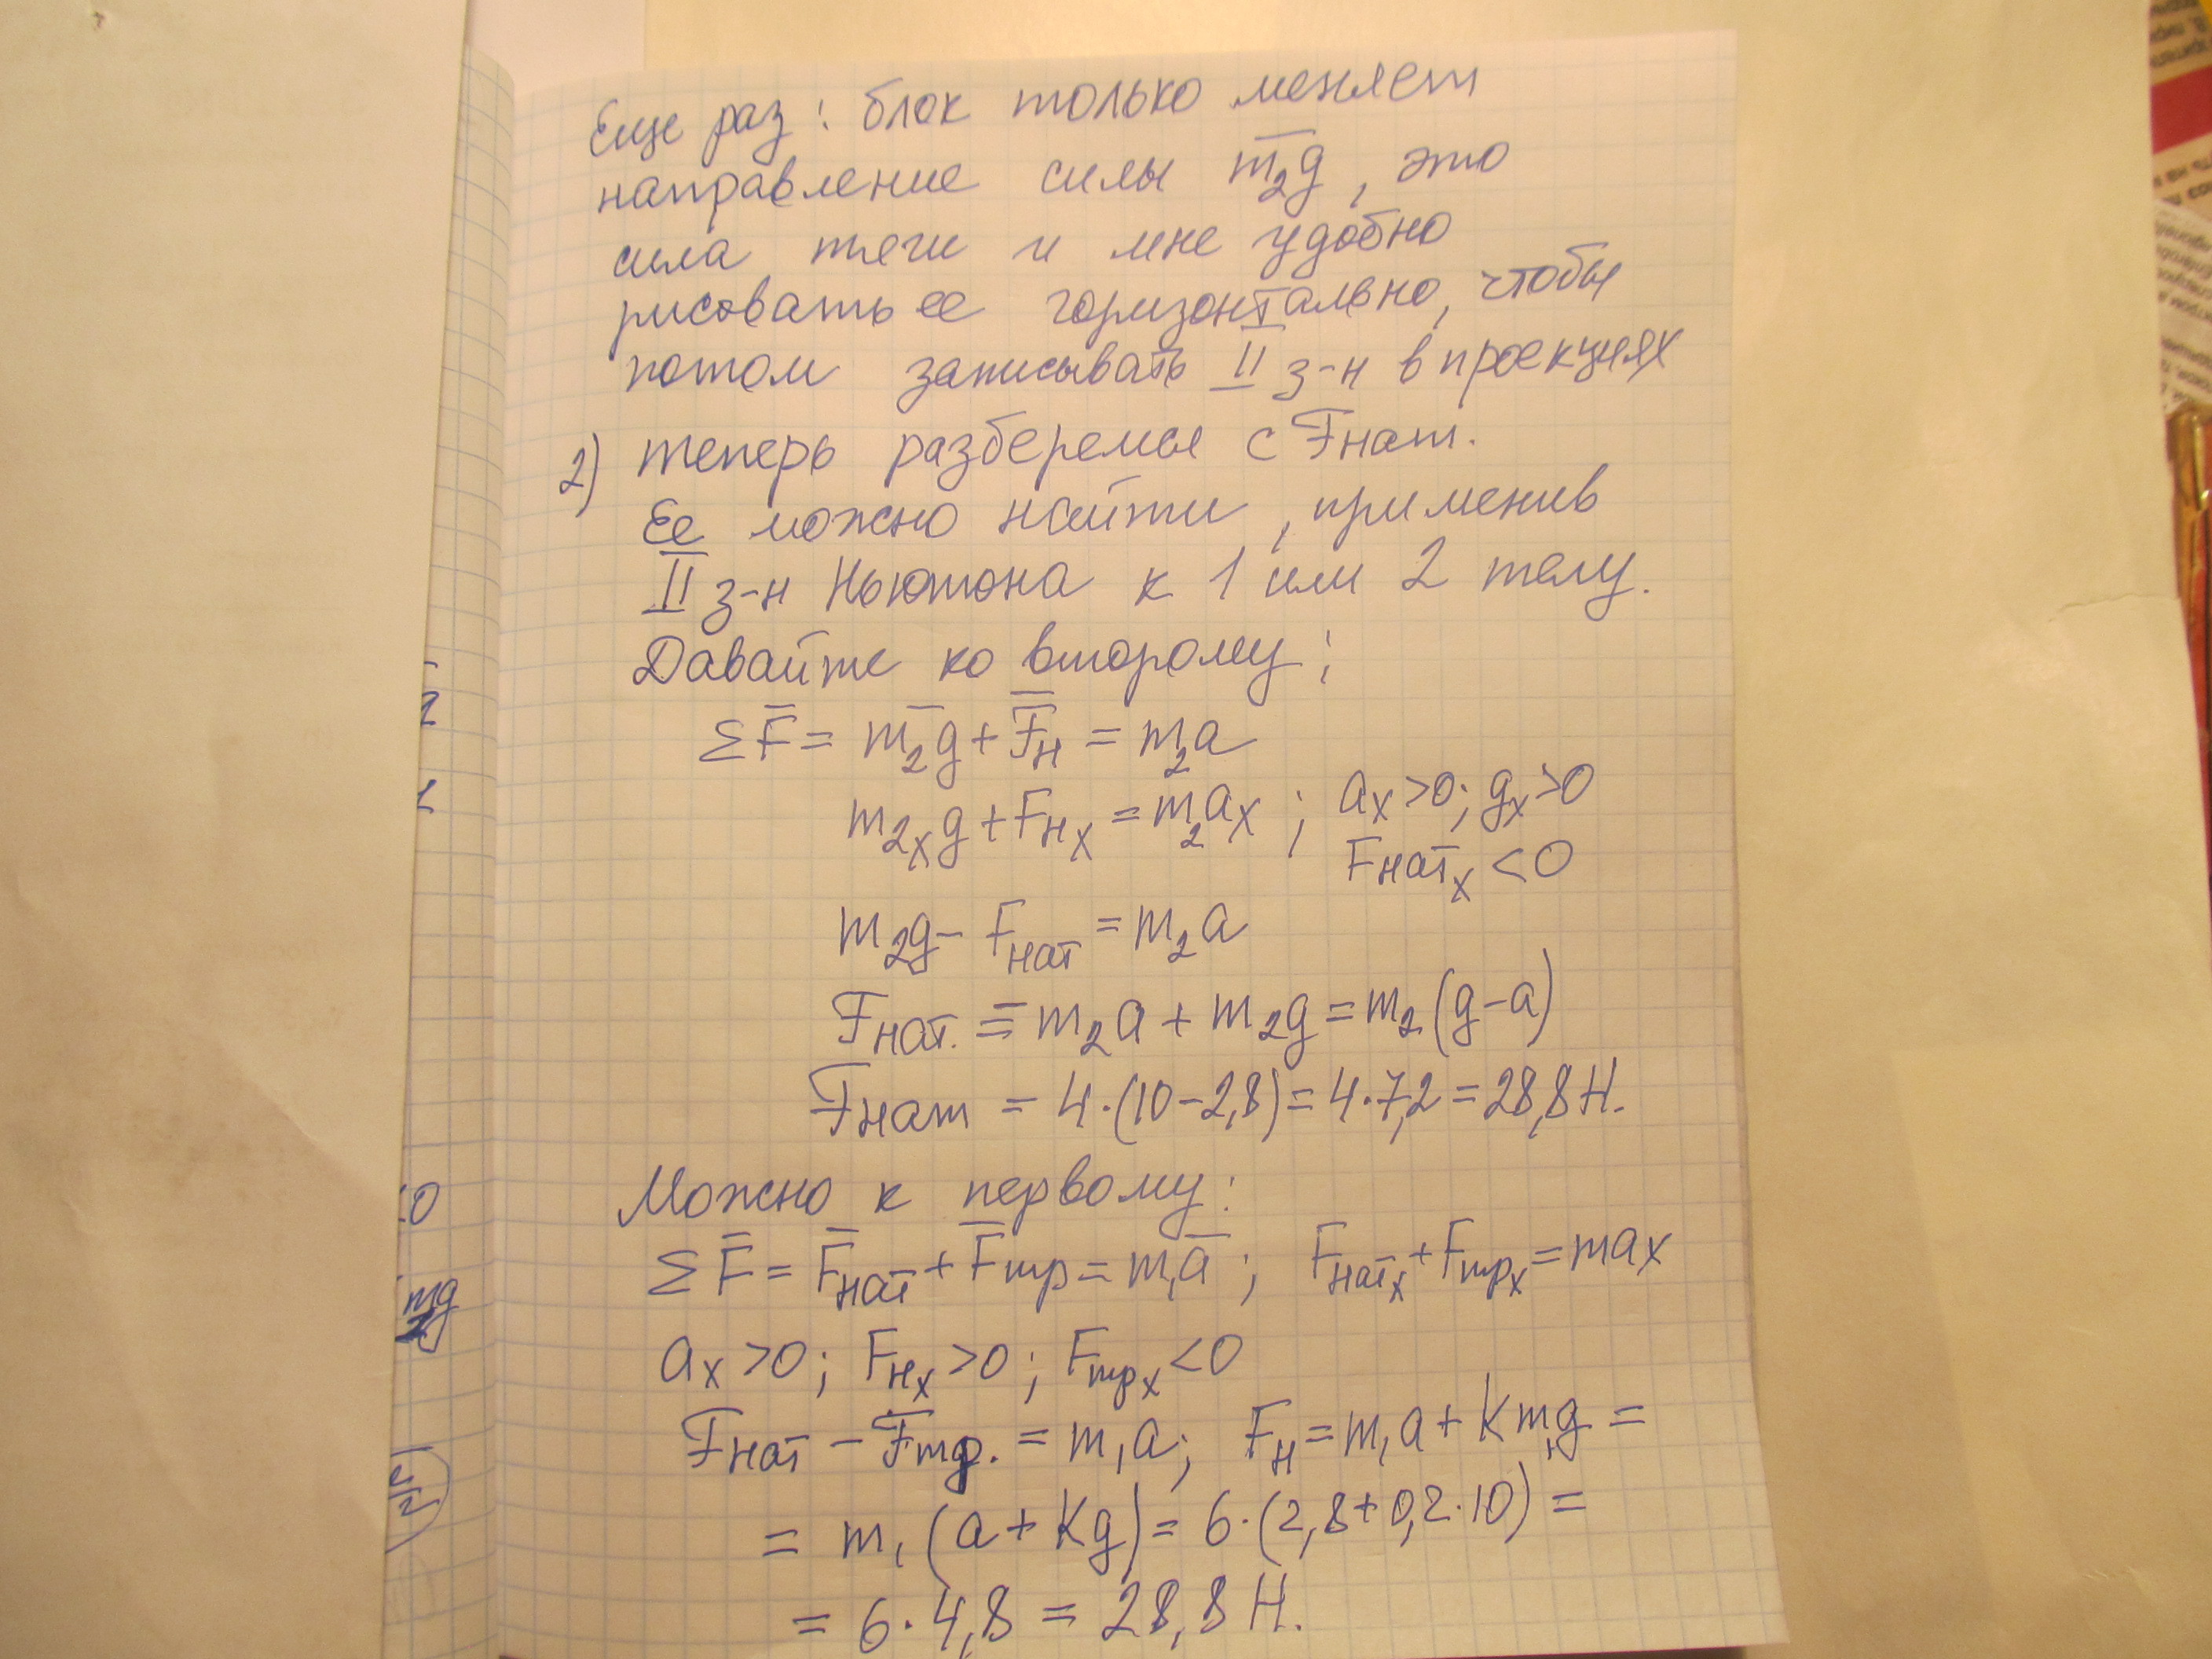 Еще раз: блок только меняет
направление силы m̅₂g̅, это
сила тяги и мне удобно
рисовать ее горизонтально, чтобы
потом записывать II з-н в проекциях
2) теперь разберемся с Fнат.
Ее можно найти, применив
II з-н Ньютона к 1 или 2 телу.
Давайте ко второму:
ΣF̅ = m₂g̅ + F̅н = m₂a
m₂ₓg + Fнₓ = m₂aₓ ; aₓ>0; gₓ>0
Fнатₓ <0
m₂g - Fнат = m₂a
Fнат. = m₂a + m₂g = m₂(g-a)
Fнат = 4·(10-2,8) = 4·7,2 = 28,8 Н.
Можно к первому:
ΣF̅ = F̅нат + F̅тр = m₁a̅ ; Fнатₓ + Fтрₓ = maₓ
aₓ>0; Fнₓ>0; Fтрₓ<0
Fнат - Fтр. = m₁a; Fн = m₁a + Km₁g =
= m₁(a + Kg) = 6·(2,8+0,2·10) =
= 6·4,8 = 28,8 Н.
2
1
0
mg
2